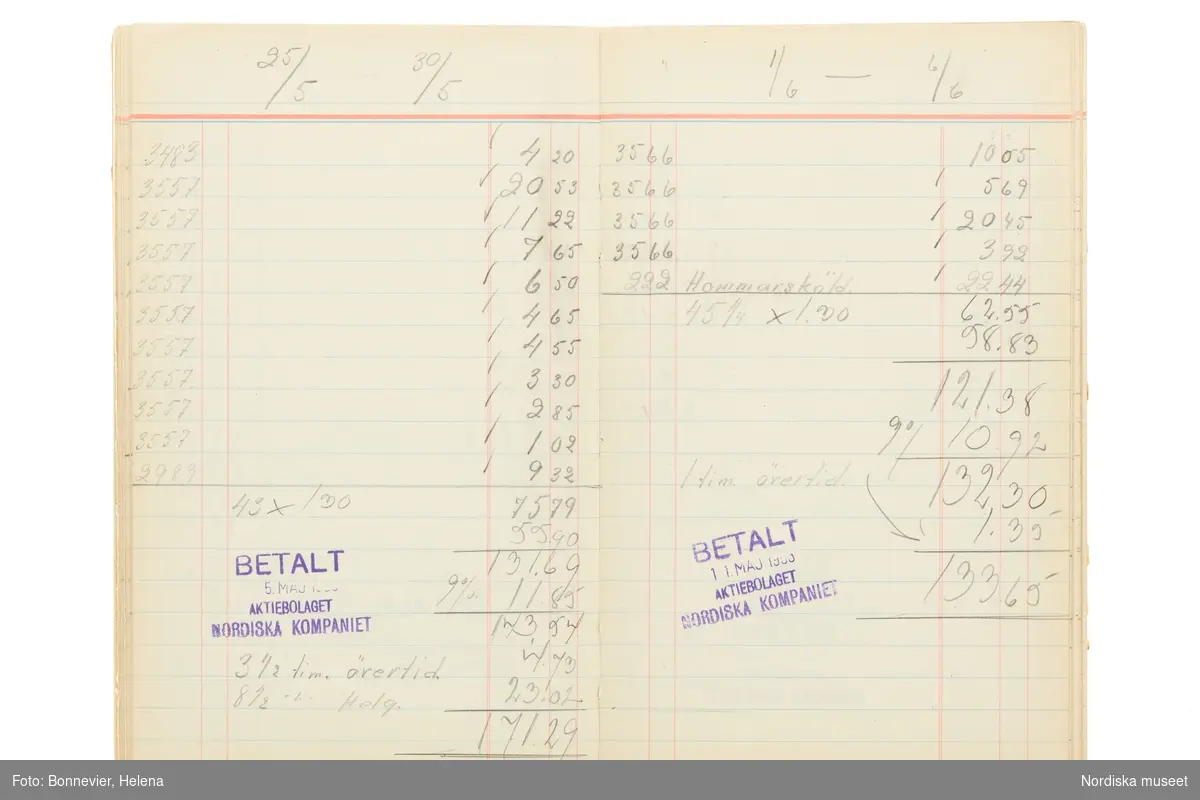 25/5 30/5
3483 4 20
3557 20 53
3557 11 22
3557 7 65
3557 6 50
3557 4 65
3557 4 55
3557 3 30
3557 2 85
3557 1 02
2989 9 32
43 x 1 30 75 79
55.90
131.69
9%. 11.85
143.54
BETALT
5. MAJ
AKTIEBOLAGET
NORDISKA KOMPANIET
3 1/2 tim. övertid. 4.73
8 1/2 -"- Helg. 23.02
171.29
1/6 — 6/6
3566 10 05
3566 5 69
3566 20 45
3566 3 92
222 Hammarsköld. 22 44
45 1/4 x 1.30 62.55
58.83
121.38
9% 10.92
1 tim. övertid. 132.30
1.35
133.65
BETALT
11. MAJ
AKTIEBOLAGET
NORDISKA KOMPANIET
Foto: Bonnevier, Helena
Nordiska museet